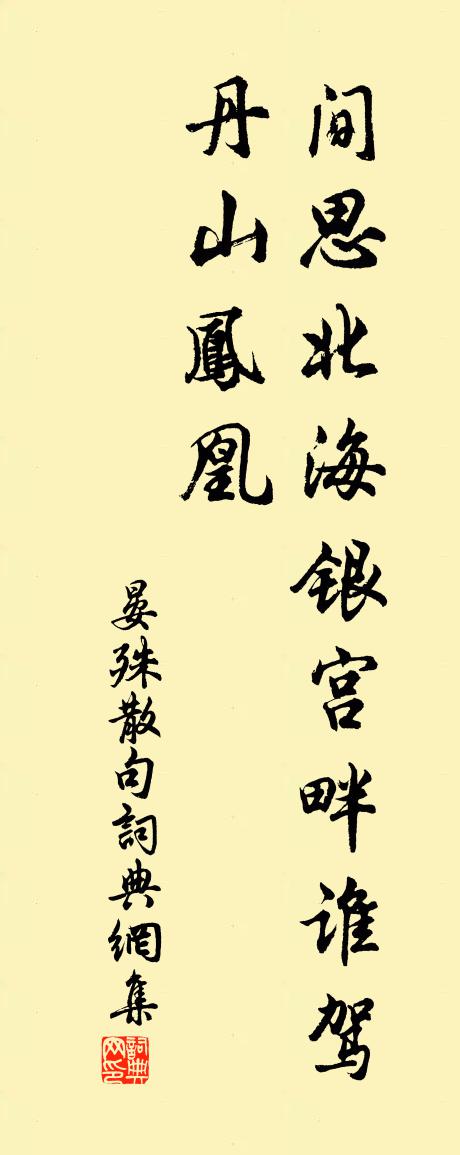 间思北海银宫畔谁驾
丹山鳳凰
晏殊散句詞典網集
詞典网印